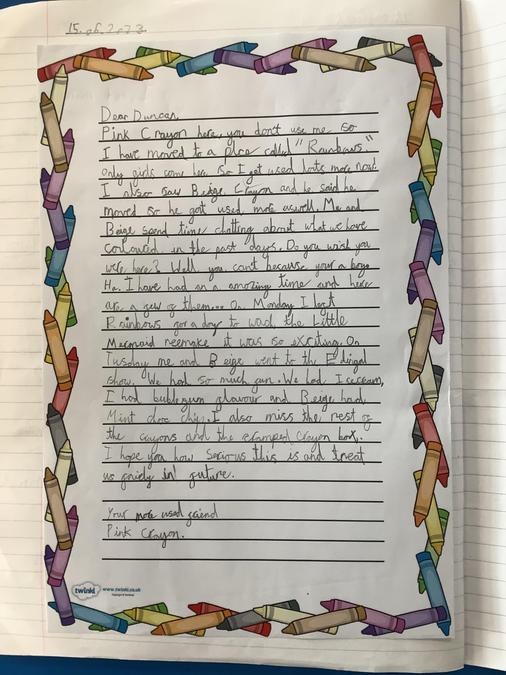 15.06.2023
Dear Duncan,
Pink Crayon here, you don't use me so
I have moved to a place called "Rainbows."
Only girls come here so I get used lots more now.
I also saw Beige Crayon and he said he
moved so he got used more aswell. Me and
Beige spend time chatting about what we have
coloured in the past days. Do you wish you
were here? Well you can't because your a boy.
Ha. I have had an amazing time and here
are a few of them... On Monday I left
Rainbows for a day to wach the Little
Mermaid it was so exciting. On
Tuesday me and Beige went to the
show. We had so much fun. We had Icecream,
I had bublegum flavour and Beige had
Mint choc chip. I also miss the rest of
the crayons and the cramped Crayon box.
I hope you how Serious this is and treat
us fairly in future.
Your more used friend
Pink Crayon.
twinkl www.twinkl.co.uk